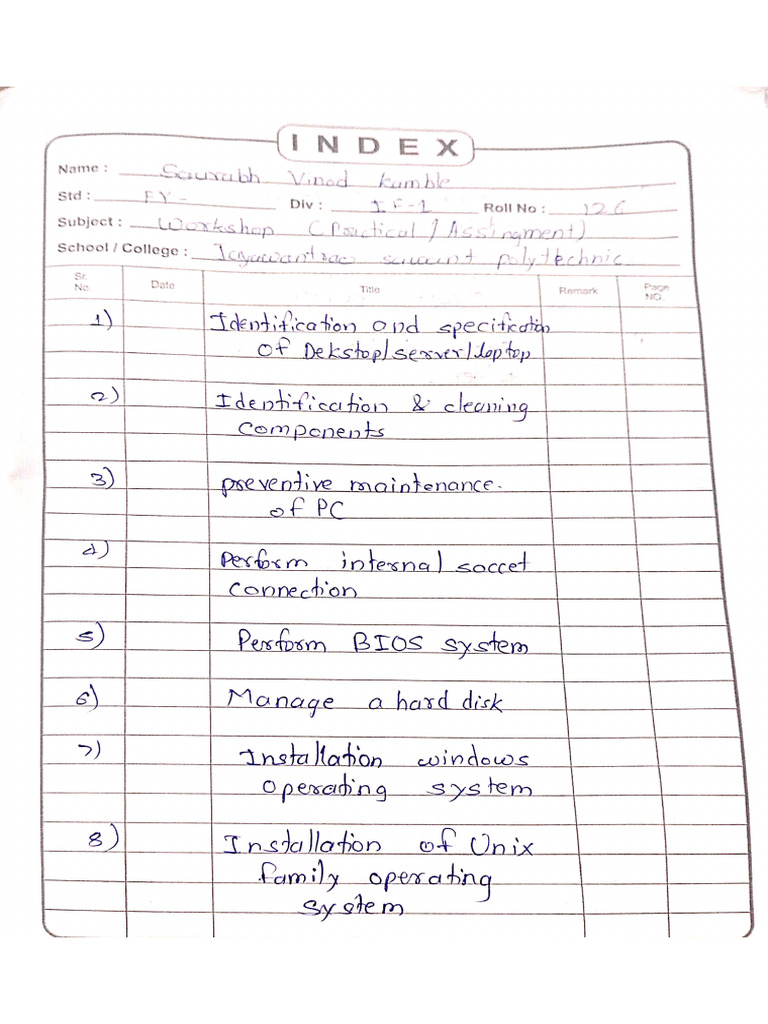 INDEX
Name : Saurabh Vinod kamble
Std : FY- Div : IF-1 Roll No : 126
Subject : Workshop (Practical / Assingment)
School / College : Jayawantrao sawant polytechnic
Sr. No. Date Title Remark Page NO.
1) Identification and specification
of Dekstop/server/laptop
2) Identification & cleaning
components
3) preventive maintenance.
of PC
4) Perform internal soccet
connection
5) Perform BIOS system
6) Manage a hard disk
7) Installation windows
operating system
8) Installation of Unix
family operating
system